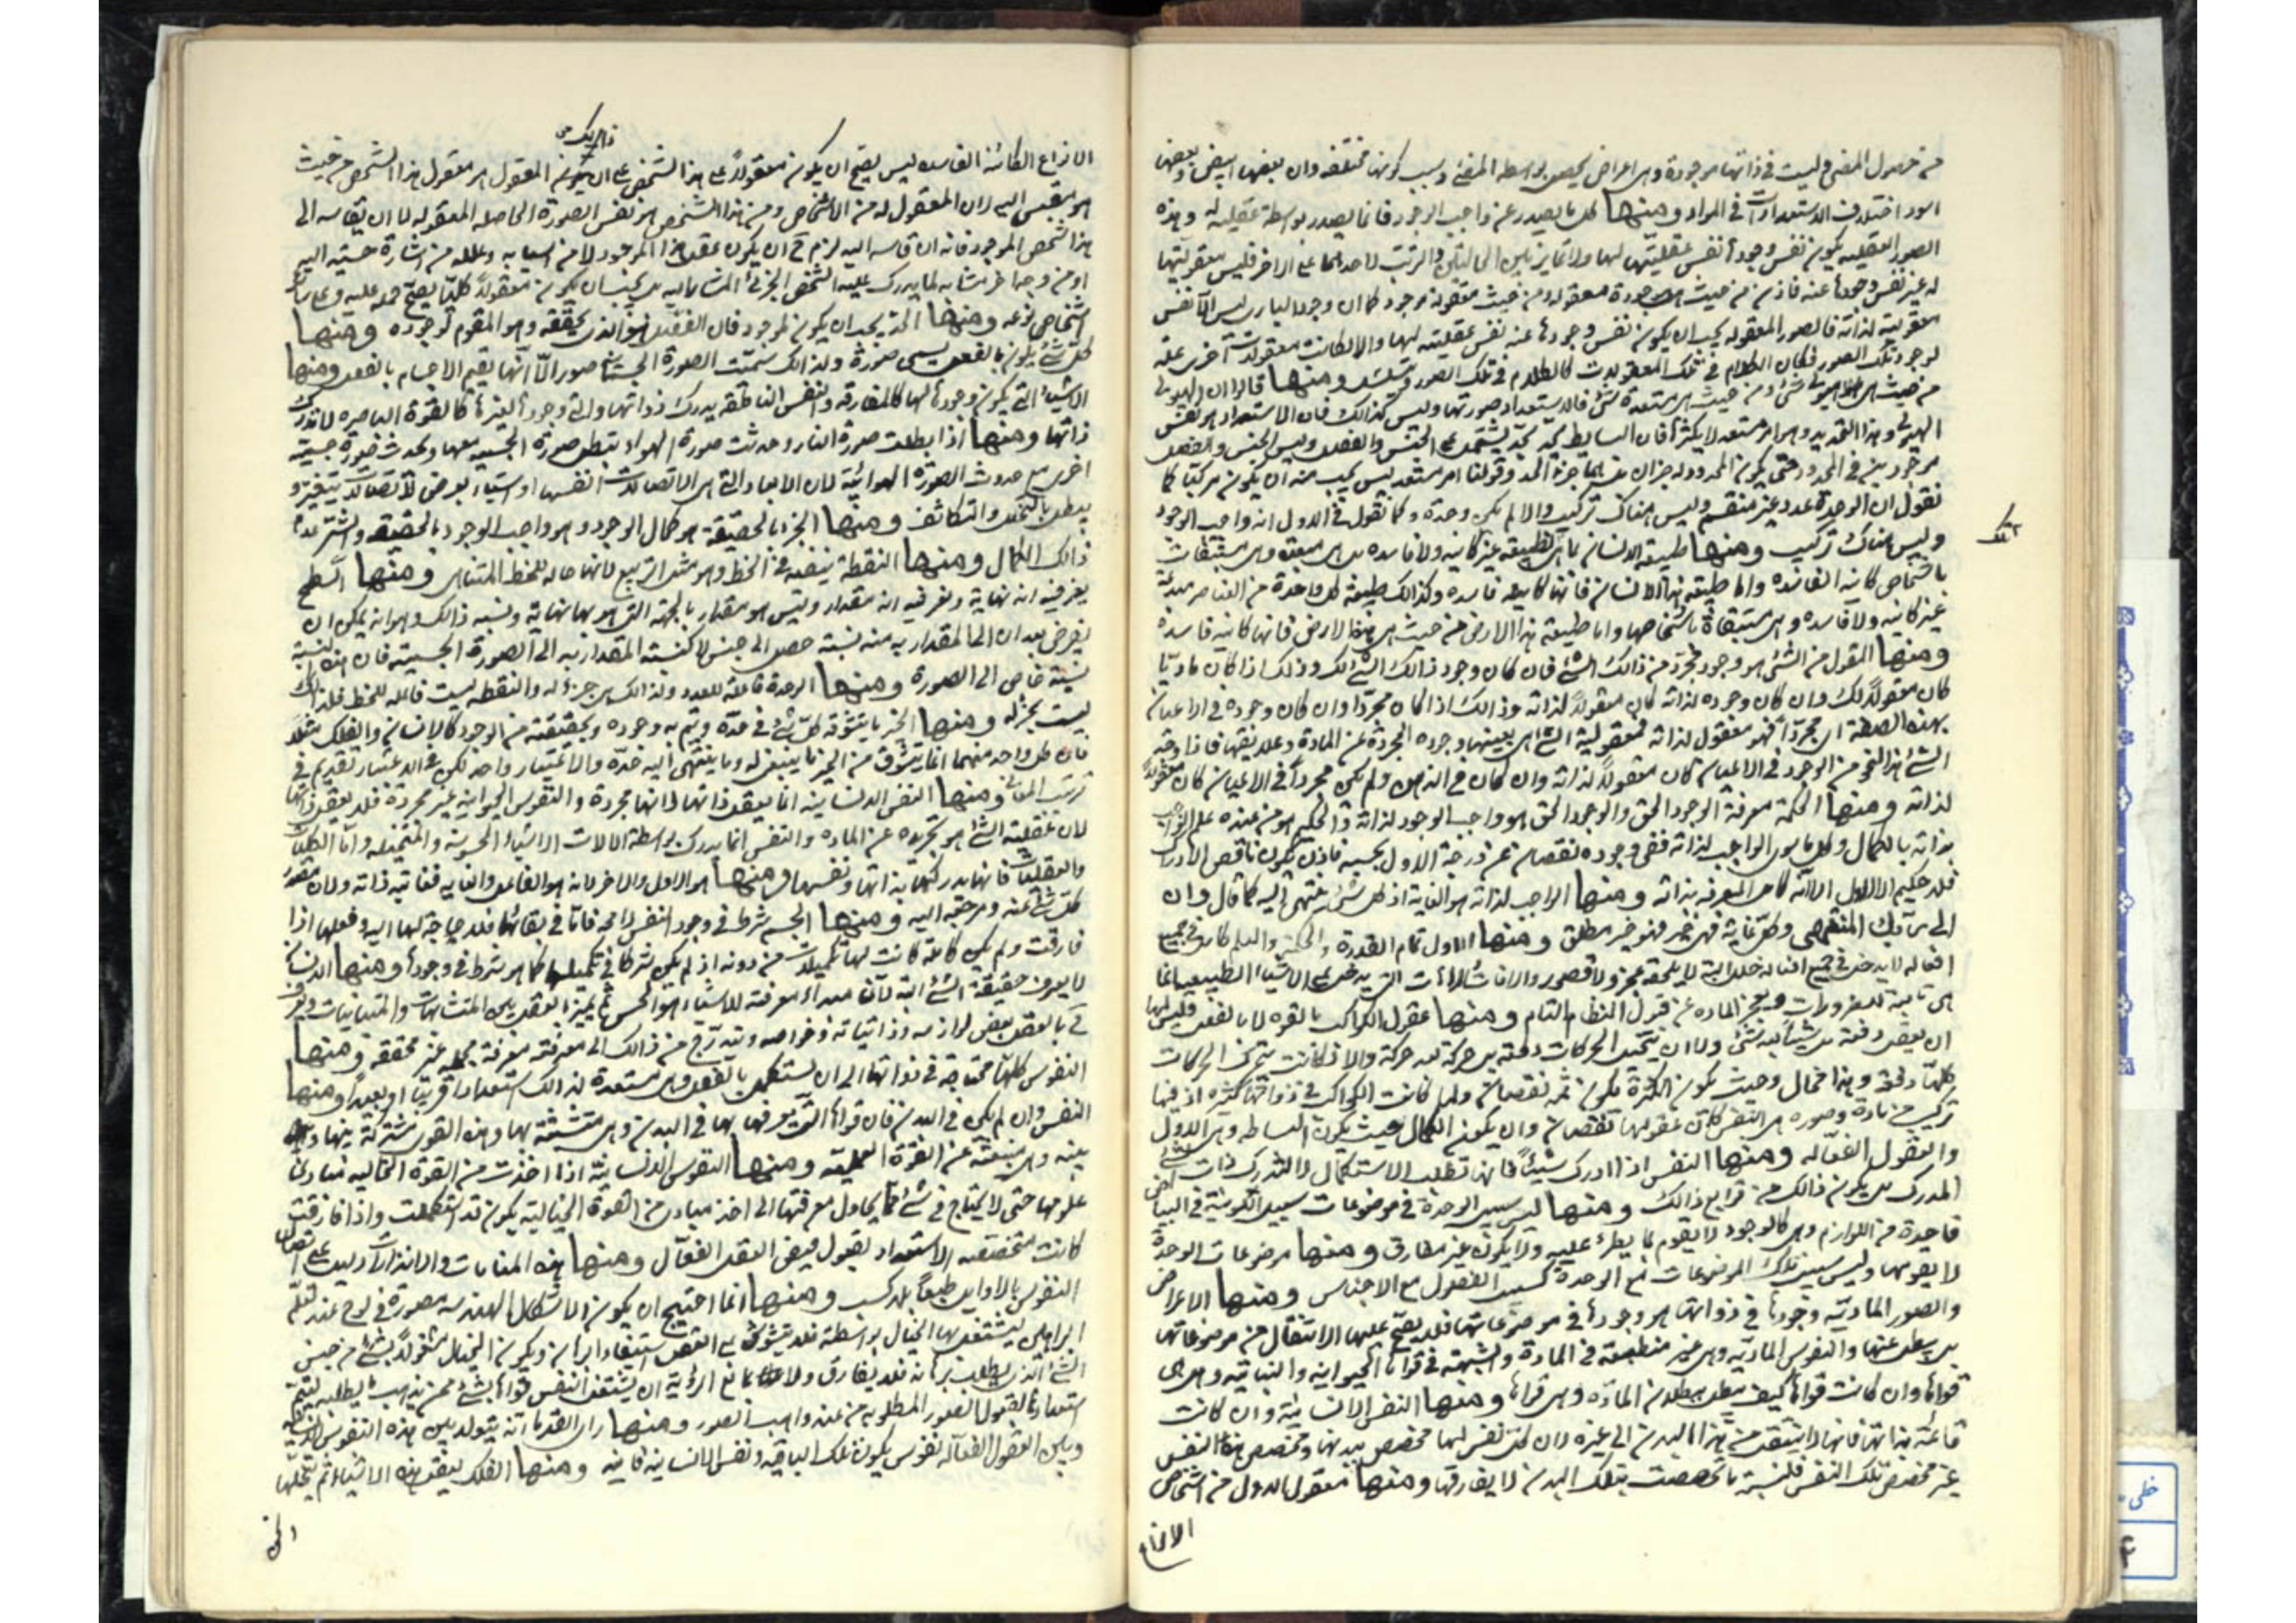 من حصول المضئ وليست في ذاتها موجودة وهي اعراض يحصل بواسطة المضئ وسبب كونها مختلفه وان بعضها ابيض وبعضها
اسود اختلاف الاستعدادات في المواد ومنها كل ما يصدر عن واجب الوجود فانما يصدر بواسطة عقليته له وهذه
الصور العقليه يكون نفس وجودها نفس عقليتها لها ولا تمايز بين الحالتين ولا ترتب لاحدهما على الاخر فليس معقوليتها
له غير نفس وجودها عنه فاذن من حيث هي موجودة معقوله ومن حيث معقولة موجوده كما ان وجود الباري ليس الا نفس
معقوليته لذاته فالصور المعقوله يجب ان يكون نفس وجودها عنه نفس عقليته لها والا لكانت معقولات اخرى علة
لوجود تلك الصور فكان الكلام في تلك المعقولات كالكلام في تلك الصور ويتسلسل ومنها قالوا ان الهيولى
من حيث هي هيولى شئ ومن حيث هي مستعدة شئ فالاستعداد صورتها وليس كذالك فان الاستعداد هو نفس
الهيولى وهذا التحديد وهو امر مستعد لا يكثرها فان البسايط يحد بحد يشتمل على الجنس والفصل وليس الجنس والفصل
موجودين في المحدود حتى يكون المحدود له جزان بل هما جزء الحد وقولنا امر مستعد ليس يجب منه ان يكون مركبا كما
نقول ان الوحدة عدد غير منقسم وليس هناك تركيب والا لم يكن وحدة وكما نقول في الاول انه واجب الوجود
وليس هناك تركيب ومنها طبيعة الانسان بما هي تلك الطبيعه غير كاينه ولا فاسده بل هي مبدعه وهي مستبقات
باشخاص كاينه الفاسده واما طبيعة هذا الانسان فانها كاينه فاسده وكذالك طبيعة كل واحدة من العناصر مبدعة
غير كاينه ولا فاسده وهي مستبقاة باشخاصها واما طبيعة هذا الارض من حيث هي هذا الارض فانها كاينه فاسدة
ومنها المقول من الشئ هو وجود مجرد من ذالك الشئ فان كان وجود ذالك الشئ لك وذلك اذا كان ماديا
كان معقولا لك وان كان وجوده لذاته كان معقولا لذاته وذالك اذا كان مجردا وان كان وجوده في الاعيان
بهذه الصفة اي مجردا فهو معقول لذاته فمعقولية الشئ هي بعينها وجوده المجردة عن المادة وعلايقها فاذا وجد
الشئ هذا النحو من الوجود في الاعيان كان معقولا لذاته وان كان في الذهن ولم يكن مجردا في الاعيان كان معقولا
لذاته ومنها الحكمة معرفة الوجود الحق والوجود الحق هو واجب الوجود لذاته والحكيم هو من عنده علم الواجب
بذاته بالكمال وكل ما سوى الواجب لذاته ففي وجوده نقصان عن درجة الاول بحسبه فاذن يكون ناقص الادراك
فلا حكيم الا الاول الا انه كامل المعرفه بذاته ومنها الواجب لذاته هو الغاية اذ كل شئ ينتهي اليه كما قال وان
الى ربك المنتهى وكل غاية فهي خير فهو خير مطلق ومنها الاول تام القدرة والحكمة والعلم كامل في جميع
افعاله لا يدخل في جميع افعاله خلل البتة لا يلحقه عجز ولا قصور والافات والعاهات التي يدخل على الاشياء الطبيعيه انما
هي تابعة للضرورات ويعجز الماده عن قبول النظام التام ومنها عقول الكواكب بالقوة لا بالفعل فليس لها
ان يعقل دفعة بل شيئا بعد شئ ولا ان يتخيل الحركات دفعة بل حركة بعد حركة والا لكانت يتحرك الحركات
كلها دفعة وهذا محال وحيث يكون الكثرة يكون ثمه نقصان ولما كانت الكواكب في ذواتها كثرة اذ فيها
تركيب من مادة وصوره هي النفس كان عقولها نقصان وان يكون الكمال حيث يكون البساطه وهي الاول
والعقول الفعاله ومنها النفس اذا ادرك شيئا فانها تطلب الاستكمال لا المدرك ذات
المدرك بل يكون ذالك من توابع ذالك ومنها ليس سبيل الوحدة في موضوعات سبيل اللونية في البياض
فالوحدة من اللوازم وهي كالوجود لا يقوم لما يطرء عليه ولا يكون غير مفارق ومنها موضوعات الوحدة
لا يقومها وليس سبيل تلك الموضوعات مع الوحدة كسبيل الفصول مع الاجناس ومنها الاعراض
والصور المادية وجودها في ذواتها هو وجودها في موضوعاتها فلا يصح عليها الانتقال من موضوعاتها
بل يبطل عنها والنفوس المادية وهي غير منطبعة في المادة والشبهة في قواها الحيوانيه والنباتيه وهل هي
قواها وان كانت قواها كيف يبطل ببطلان المادة وهي قواها ومنها النفس الانسانية وان كانت
قائمة بذاتها فانها لا ينتقل من هذا البدن الى غيره لان كل نفس لها مخصص ببدنها ومخصص هذه النفس
غير مخصص تلك النفس فلنسبة ما تخصصت بتلك البدن لا يفارقها ومنها معقول الاول من اشخاص
الانواع
الانواع الكائنه الفاسده ليس يصح ان يكون معقولا على هذا الشخص على ان يكون المعقول هو معقول هذا الشخص من حيث
هو مقيس اليه لان المعقول له من الاشخاص ومن هذا الشخص هو نفس الصورة الحاصله المعقوله لا ان يقاسه الى
هذا الشخص الموجود فانه ان قاسه اليه لزم ح ان يكون عقل هذا الموجود لا من اسبابه وعلله من اشارة حسية اليه
او من وجه اخر مشابه لما يدرك عليه الشخص الجزئي المشار اليه بل يجب ان يكون معقولا كليا يصح حمله عليه وعلى ساير
اشخاص نوعه ومنها الحد يجب ان يكون لموجود فان الفصل هو الذي يحققه وهو المقوم لوجوده ومنها
كل شئ يكون بالفعل يسمى صورة ولذالك سميت الصورة الجسمية صورا لا انها يقيم الاجسام بالفعل ومنها
الاشياء التي يكون وجودها لها كالمفارقه والنفس الناطقه يدرك ذواتها والتي وجودها لغيرها كالقوة الباصره لا تدرك
ذاتها ومنها اذا بطلت صورة النار وحدثت صورة الهواء تبطل صورة الجسميه معها وتحدث صورة جسمية
اخرى مع حدوث الصورة الهوائية لان الابعاد التي هي الاتصالات انفسها او اشياء يعرض لاتصالات يتغير و
يبطل بالتخلخل والتكاثف ومنها الخير بالحقيقة هو كمال الوجود وهو واجب الوجود بالحقيقه والشر عدم
ذالك الكمال ومنها النقطة ينضف في الخط وهو مثل التربيع لانها حاله للخط المتناهي ومنها السطح
يعرف فيه انه نهاية ونعرف فيه انه مقدار وليس هو مقدار بالجهة التي هو بها نهاية ونسبه ذالك وهو انه يمكن ان
يفرض بعدان الى المقدارية منه نسبة فصل الى جنس لا كنسبة المقدارية الى الصورة الجسمية فان هذه النسبة
نسبة خاص الى الصورة ومنها الوحدة فاعلة للعدد ولذالك هي جزء له والنقطه ليست فاعله للخط فلذالك
ليست بجزء له ومنها الخير ما يتشوقه كل شئ في حده ويتم به وجوده وحقيقته من الوجود كالانسان والفلك مثلا
فان كل واحد منهما انما يتشوق من الخير ما ينبغي له وما ينتهي اليه حده والاعتبار واحد لكن في الاعتبار تقديم في
ترتب المعاني ومنها النفس الانسانيه انما يعقل ذاتها لانها مجردة والنفوس الحيوانيه غير مجردة فلا يعقل ذاتها
لان عقلية الشئ هو تجريده عن الماده والنفس انما يدرك بواسطة الالات الاشياء المحسوسة والمتخيله واما الكليات
والعقليات فانها يدركها بذاتها ونفسها ومنها هو الاول والاخر لانه هو الفاعل والغايه فغايته ذاته ولان مصدر
كل شئ عنه ومرجعه اليه ومنها الجسم شرط في وجود النفس لا محه فاما في بقائها فلا حاجة لها اليه ولعلها اذا
فارقت ولم يكن كاملة كانت لها تكميلات من دونه اذ لم يكن شرطا في تكميلها كما هو شرط في وجودها ومنها الانسان
لا يعرف حقيقة الشئ البته لان مبداء معرفته للاشياء هو الحس ثم يميز بالعقل بين المتشابهات والمتباينات ويعرف
ح بالعقل بعض لوازمه وذاتياته وخواصه ويتدرج من ذالك الى معرفته معرفة مجمله غير محققه ومنها
النفوس كلها محتاجة في ذواتها الى ان يستكمل بالفعل وهي مستعدة لذالك استعدادا قريبا او بعيدا ومنها
النفس وان لم يكن في البدن فان قواها التي تصرفها بها في البدن وهي متشبثة بها وهذه القوى مشتركة بينها و
بينه وهي منبعثة عن القوة العمليه ومنها النفوس الانسانية اذا اخذت من القوة الخياليه مبادئ
علومها حتى لا يحتاج في شئ مما يحاول معرفتها الى اخذ مبادئ من القوة الخيالية يكون قد استكملت واذا فارقت
كانت متخصصه الاستعداد لقبول فيض العقل الفعال ومنها هذه المنامات والانذارات دليل على اتصال
النفوس بالاوايل طبعا بلا كسب ومنها انما احتيج ان يكون الاشكال الهندسية مصورة في لوح عند تعلم
البراهين ليشتغل بها الخيال بواسطة فلا يتشوش على العقل استفادة البرهان ويكون الخيال مشغولا بشئ من جنس
الشئ الذي يطلب برهانه فلا يفارق ولا يمانع الرؤية ان يشتغل النفس قواها بشئ من جنس ما يطلبه ليتم
استعدادها لقبول الصور المطلوبه من عند واهب الصور ومنها راى القدماء انه يتولد بين هذه النفوس الانسانيه
وبين العقول الفعاله نفوس يكون تلك الباقيه ونفس الانسانيه فانيه ومنها الفلك يعقل هذه الاشياء ثم يتخيلها